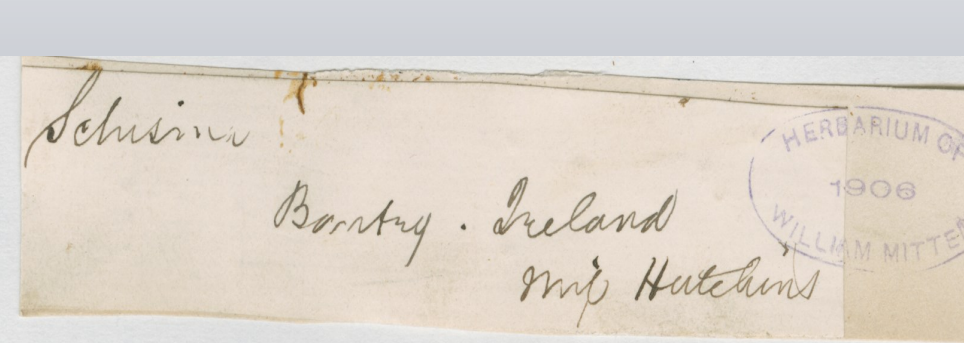 Schisma
Bantry. Ireland
Miss Hutchins
HERBARIUM OF
1906
WILLIAM MITTEN